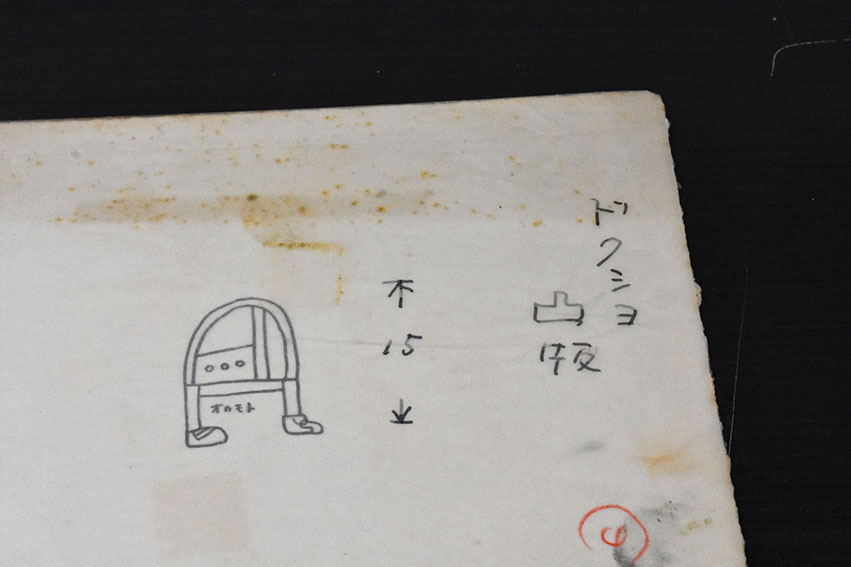 ドクショ
凸版
15
オカモト
4